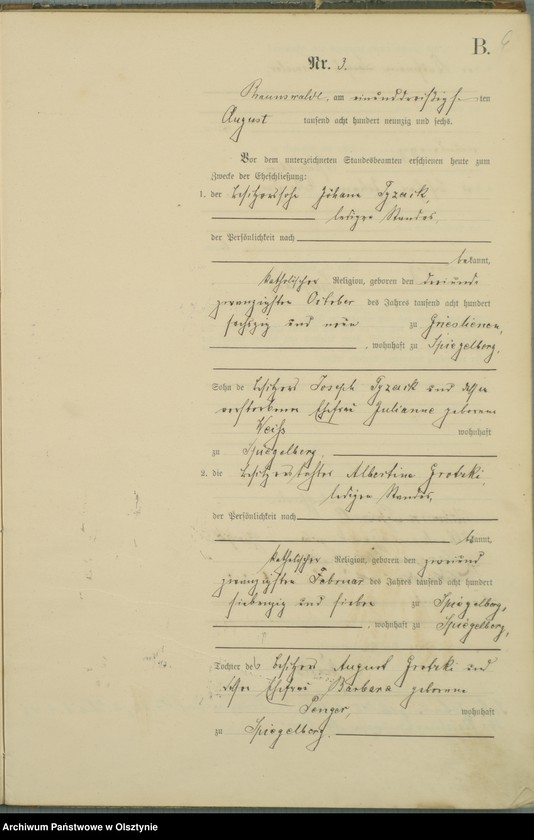 B. 6
Nr. 3.
Braunswalde, am einunddreißigsten
August tausend acht hundert neunzig und sechs.
Vor dem unterzeichneten Standesbeamten erschienen heute zum
Zwecke der Eheschließung:
1. der Besitzersohn Johann
ledigen Standes,
der Persönlichkeit nach
bekannt,
katholischer Religion, geboren den dreiund-
zwanzigsten October des Jahres tausend acht hundert
sechszig und neun zu Grieslienen,
, wohnhaft zu Spiegelberg,
Sohn des Besitzers Joseph und dessen
verstorbenen Ehefrau Julianne geborene
Weiß wohnhaft
zu Spiegelberg.
2. die Besitzerstochter Albertine Grotzki,
ledigen Standes,
der Persönlichkeit nach
bekannt,
katholischer Religion, geboren den zweiund
zwanzigsten Februar des Jahres tausend acht hundert
siebenzig und sieben zu Spiegelberg,
, wohnhaft zu Spiegelberg,
Tochter des Besitzers August Grotzki und
dessen Ehefrau Barbara geborene
wohnhaft
zu Spiegelberg.
Archiwum Państwowe w Olsztynie